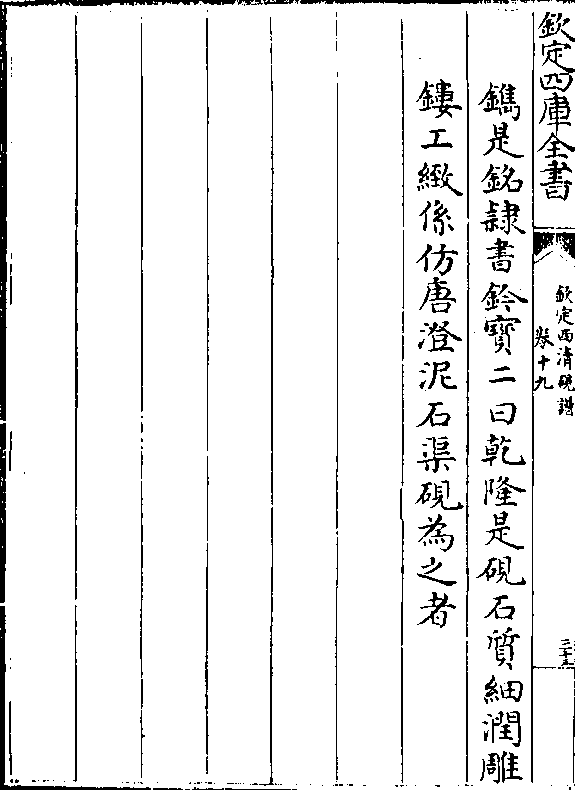 欽定四庫全書
欽定西清硯譜
卷十九
鐫是銘隸書鈐寶二曰乾隆是硯石質細潤雕
鏤工緻係仿唐澄泥石渠硯為之者